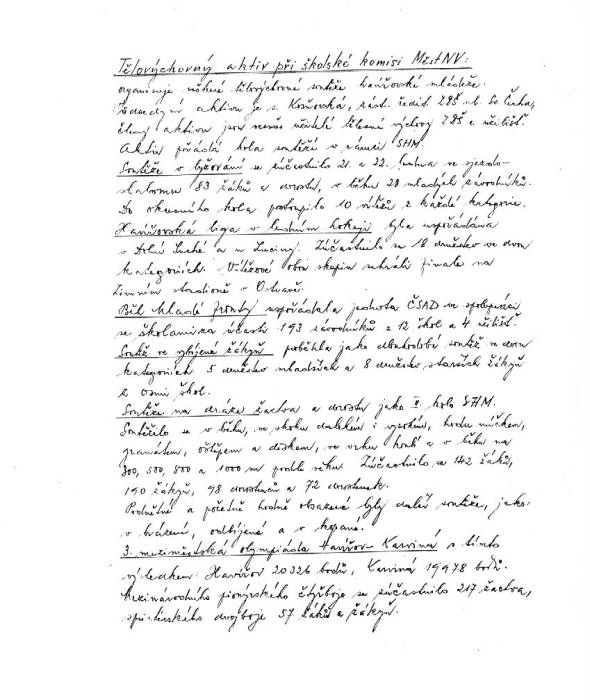 Tělovýchovný aktiv při školské komisi MěstNV:
organizuje různé tělovýchovné soutěže havířovské mládeže.
aktivu je s. zást. ředit. ZDŠ
členy aktivu jsou učitelé tělesné výchovy ZDŠ a učilišť.
Aktiv pořádá kola soutěží v rámci SHM.
Soutěže v lyžování se zúčastnilo 21. a 22. ledna ve sjezdo-
slalomu 83 žáků a dorostu, v běhu 29 mladých závodníků.
Do okresního kola postoupilo 10 vítězů z každé kategorie.
Havířovská liga v ledním hokeji byla uspořádána
v Dolní Suché a u Luciny. Zúčastnilo se 18 družstev ve dvou
kategoriích. Vítězové obou skupin sehráli finale na
zimním stadioně v Ostravě.
Běh Mladé fronty uspořádala jednota ČSAD ve spolupráci
se školami za účasti 193 závodníků z 12 škol a 4 učilišť.
Soutěž ve vybíjené žákyň proběhla jako dlouhodobá soutěž ve dvou
kategoriích 5 družstev mladších a 8 družstev starších žákyň
z osmi škol.
Soutěže na dráze žactva a dorostu jako II. kolo SHM.
Soutěžilo se v běhu, ve skoku dalekém i vysokém, hodu míčkem,
granátem, oštěpem a diskem, ve vrhu koulí a v běhu na
300, 500, 800 a 1000 m podle věku. Zúčastnilo se 142 žáků,
190 žákyň, 98 dorostenců a 72 dorostenek.
Podnětné a početně hodně obsazené byly další soutěže, jako
v házené, odbíjené a v kopané.
3. meziměstská olympiáda Havířov-Karviná s tímto
výsledkem: Havířov 20326 bodů, Karviná 19978 bodů.
Mezinárodního pionýrského čtyřboje se zúčastnilo 217 žactva,
dvojboje 57 žáků a žákyň.